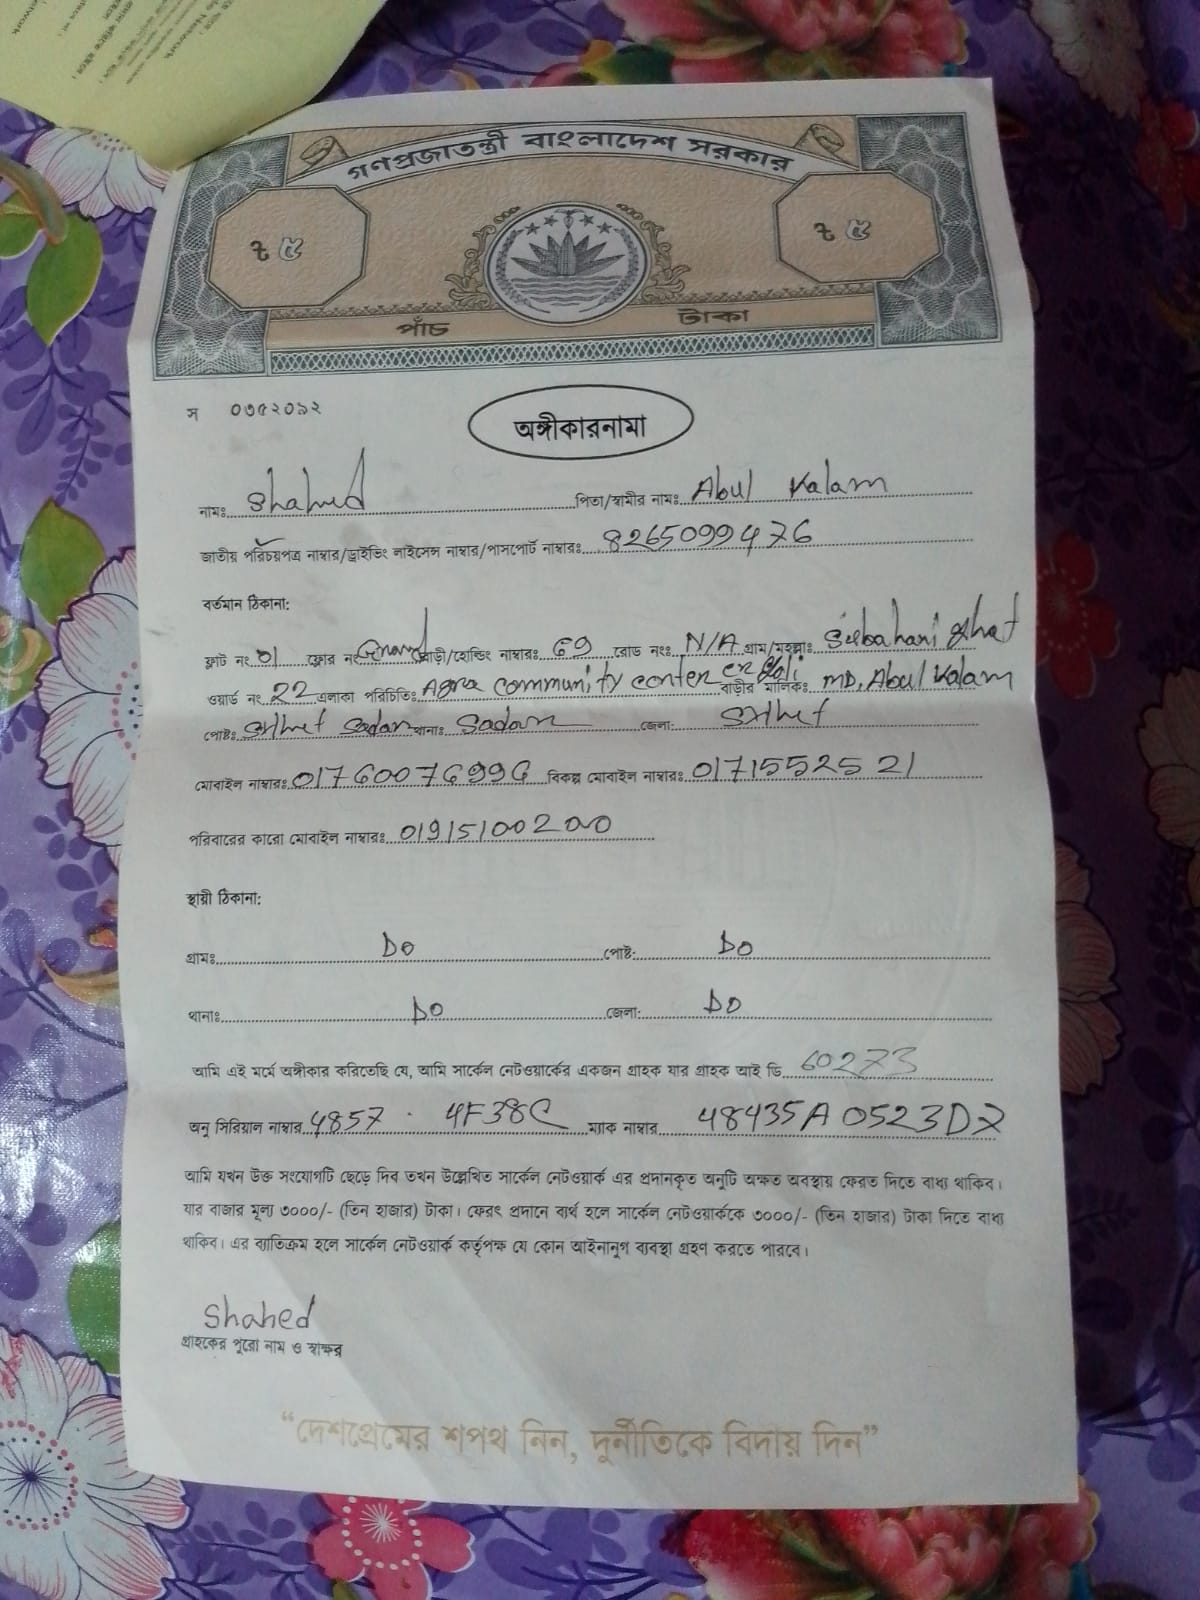 গণপ্রজাতন্ত্রী বাংলাদেশ সরকার
৳ ৫ ৳ ৫
পাঁচ টাকা
স ০৩৫২০৯২
অঙ্গীকারনামা
নামঃ Shahed পিতা/স্বামীর নামঃ Abul Kalam
জাতীয় পরিচয়পত্র নাম্বার/ড্রাইভিং লাইসেন্স নাম্বার/পাসপোর্ট নাম্বারঃ 8265099476
বর্তমান ঠিকানা:
ফ্লাট নং 01 ফ্লোর নং Ground বাড়ী/হোল্ডিং নাম্বারঃ 69 রোড নংঃ N/A গ্রাম/মহল্লাঃ Subahani ghat
ওয়ার্ড নং 22 এলাকা পরিচিতিঃ Agra community center er goli বাড়ীর মালিকঃ MD. Abul Kalam
পোষ্টঃ Sylhet Sadar থানাঃ Sadar জেলা: Sylhet
মোবাইল নাম্বারঃ 01760076996 বিকল্প মোবাইল নাম্বারঃ 0171552521
পরিবারের কারো মোবাইল নাম্বারঃ 01915100200
স্থায়ী ঠিকানা:
গ্রামঃ DO পোষ্ট: DO
থানাঃ DO জেলা: DO
আমি এই মর্মে অঙ্গীকার করিতেছি যে, আমি সার্কেল নেটওয়ার্কের একজন গ্রাহক যার গ্রাহক আই ডি 60273
অনু সিরিয়াল নাম্বার 4857 . 4F38C ম্যাক নাম্বার 48435A0523D7
আমি যখন উক্ত সংযোগটি ছেড়ে দিব তখন উল্লেখিত সার্কেল নেটওয়ার্ক এর প্রদানকৃত অনুটি অক্ষত অবস্থায় ফেরত দিতে বাধ্য থাকিব।
যার বাজার মূল্য ৩০০০/- (তিন হাজার) টাকা। ফেরৎ প্রদানে ব্যর্থ হলে সার্কেল নেটওয়ার্ককে ৩০০০/- (তিন হাজার) টাকা দিতে বাধ্য
থাকিব। এর ব্যতিক্রম হলে সার্কেল নেটওয়ার্ক কর্তৃপক্ষ যে কোন আইনানুগ ব্যবস্থা গ্রহণ করতে পারবে।
Shahed
গ্রাহকের পুরো নাম ও স্বাক্ষর
“দেশপ্রেমের শপথ নিন, দুর্নীতিকে বিদায় দিন”